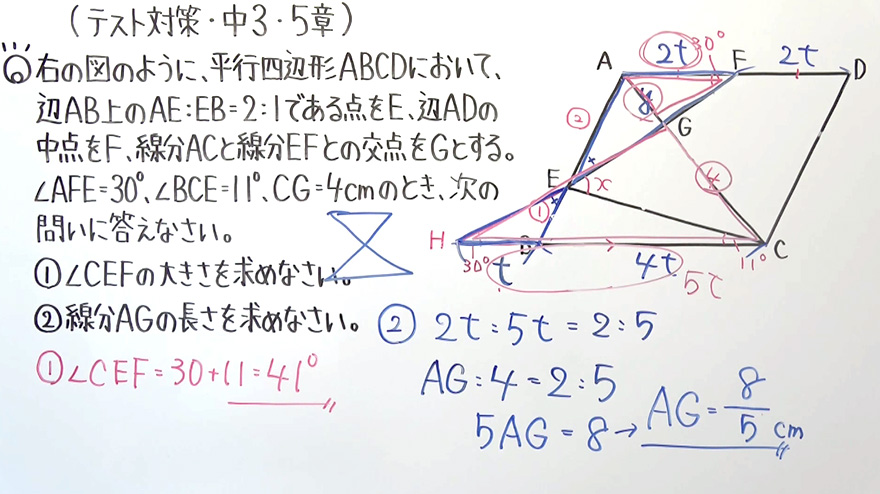 (テスト対策・中3・5章)
⑥右の図のように、平行四辺形ABCDにおいて、
辺AB上のAE:EB=2:1である点をE、辺ADの
中点をF、線分ACと線分EFとの交点をGとする。
∠AFE=30°、∠BCE=11°、CG=4cmのとき、次の
問いに答えなさい。
①∠CEFの大きさを求めなさい。
②線分AGの長さを求めなさい。
①∠CEF=30+11=41°
A 2t 30° F 2t D
② y G
E x 4
① H B C
30° t 4t 11°
5t
② 2t:5t=2:5
AG:4=2:5
5AG=8→AG=8/5cm